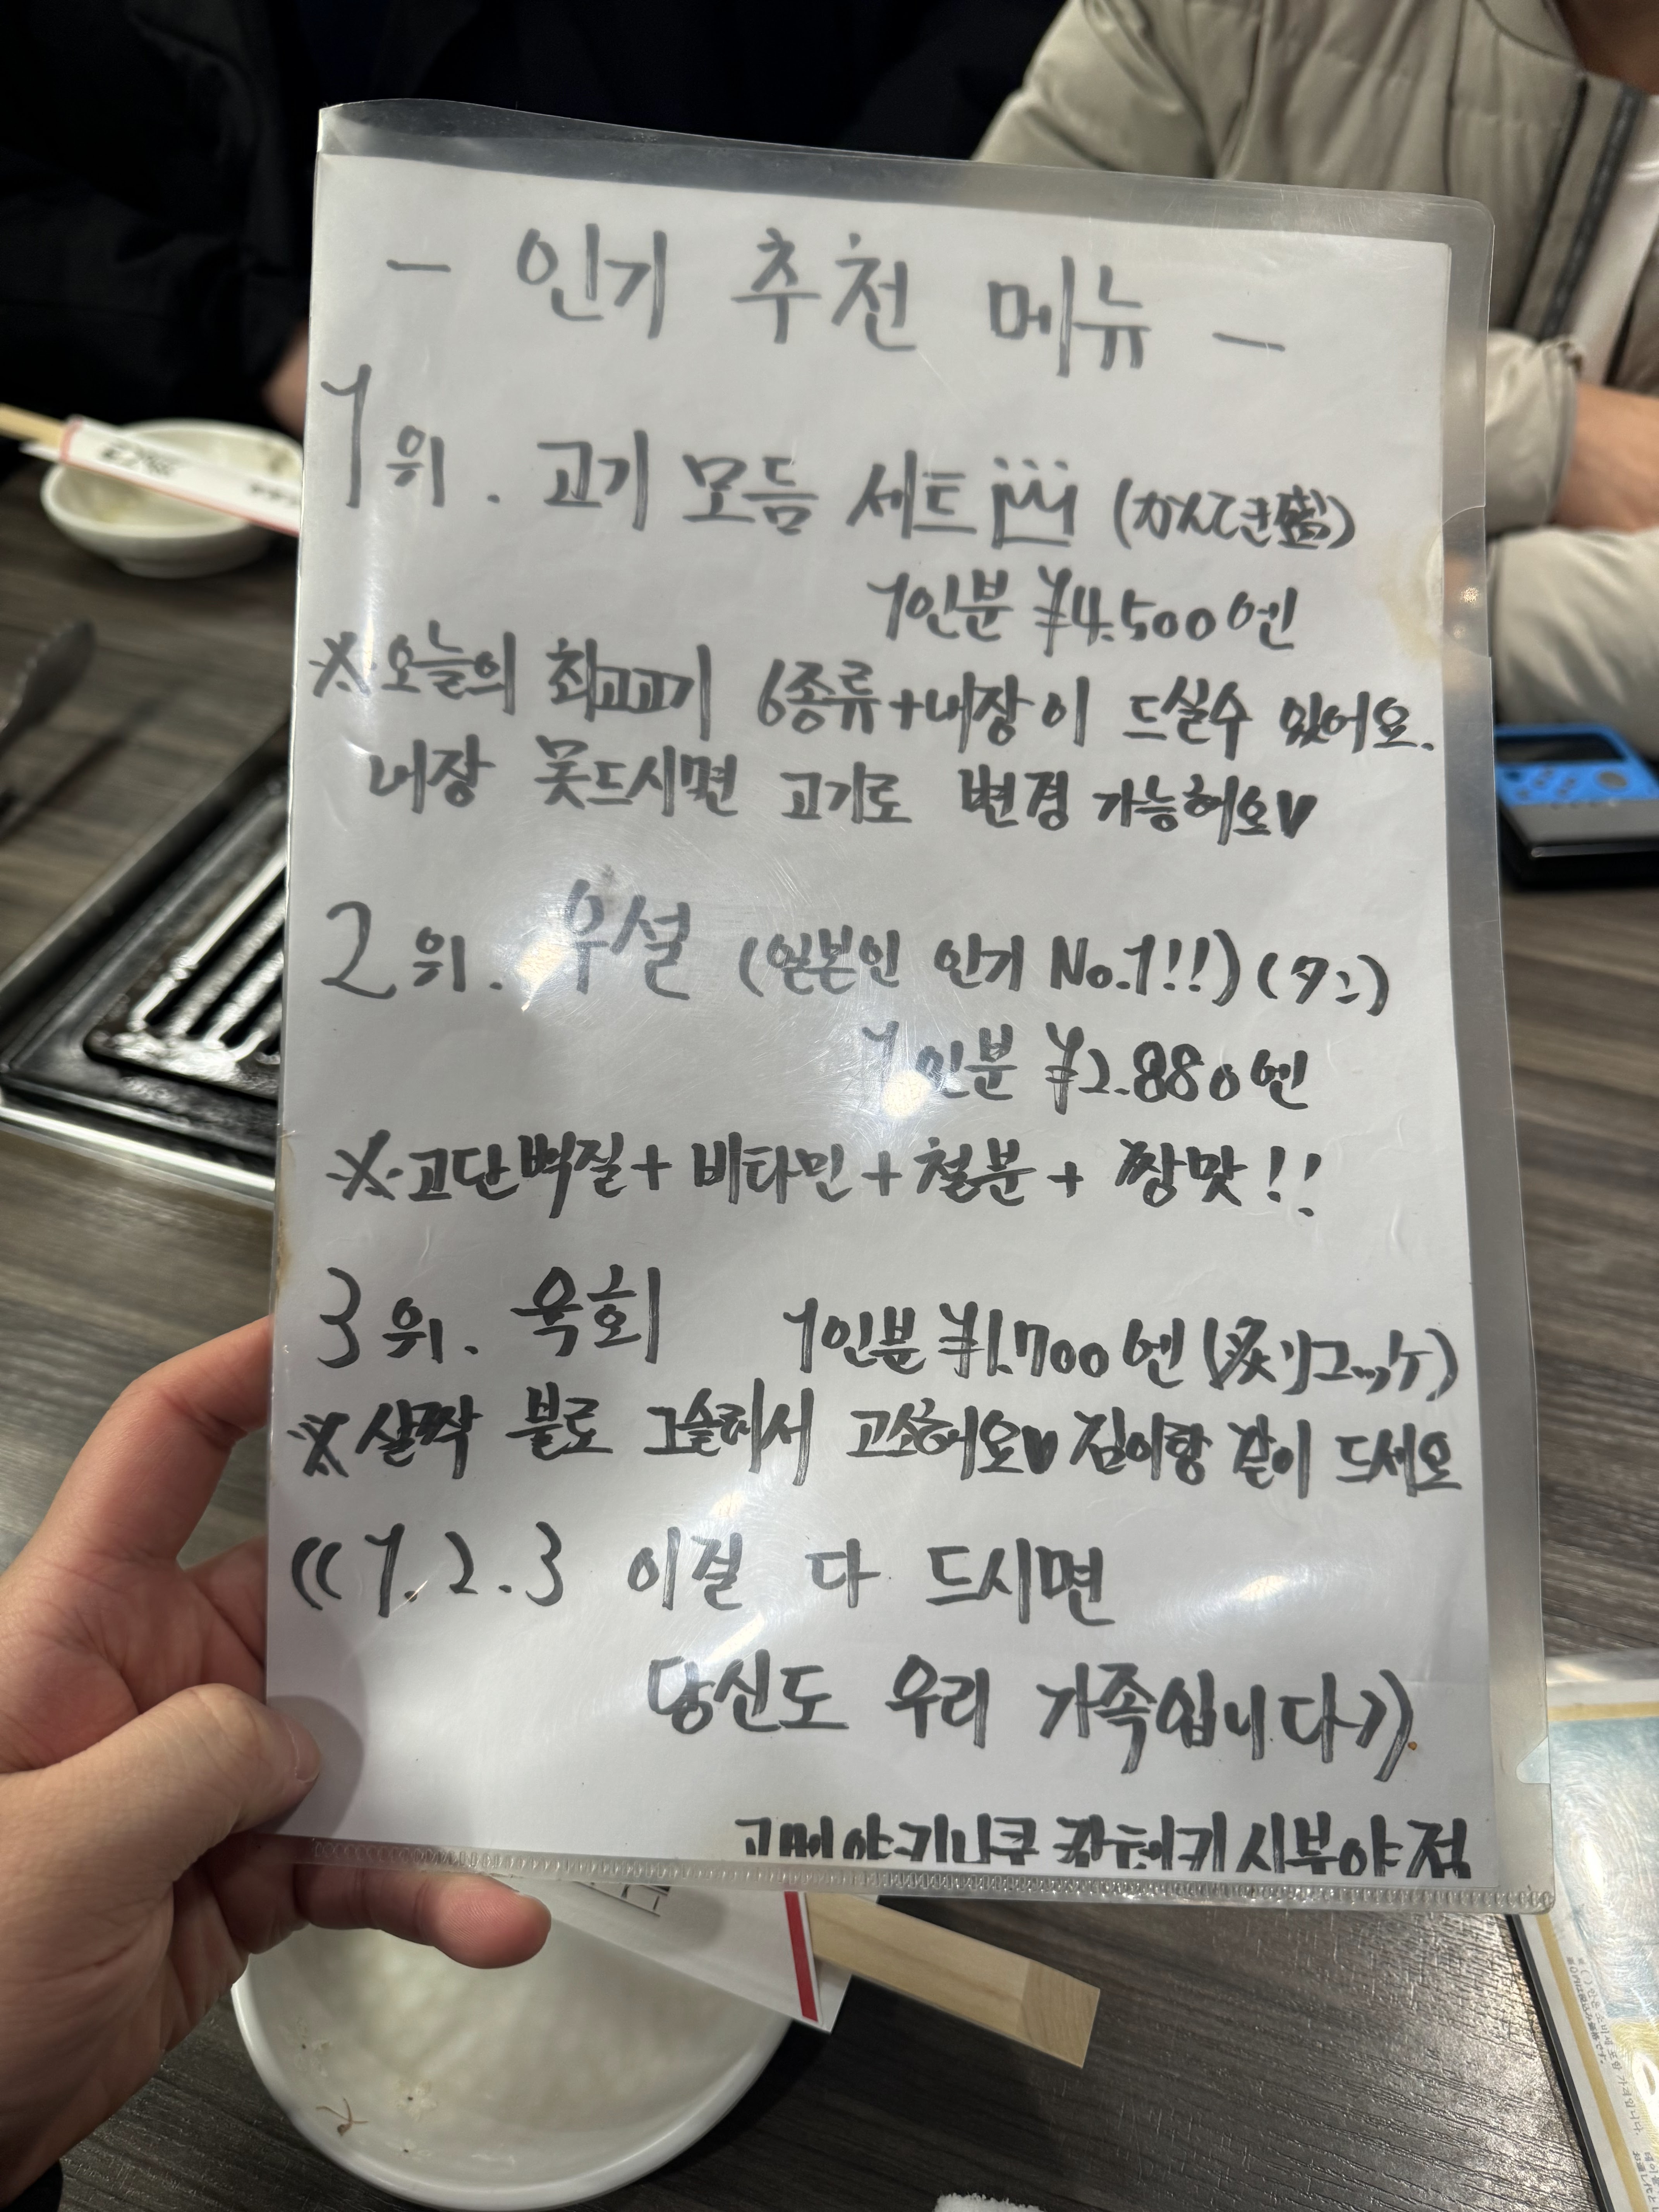 - 인기 추천 메뉴 -
1위. 고기 모듬 세트 (かんてき盛)
1인분 ¥4.500엔
※오늘의 최고고기 6종류+내장이 드실수 있어요.
내장 못드시면 고기로 변경 가능허요♥
2위. 우설 (일본인 인기 No.1!!) (タン)
1인분 ¥2.880엔
※고단벡질+비타민+철분+짱맛!!
3위. 육회 1인분 ¥1.700엔 (炙りユッケ)
※살짝 불로 그슬려서 고소허요♥ 김이랑 같이 드세요
((1.2.3 이걸 다 드시면
당신도 우리 가족입니다))
고메야키니쿠 칸테키 시부야점